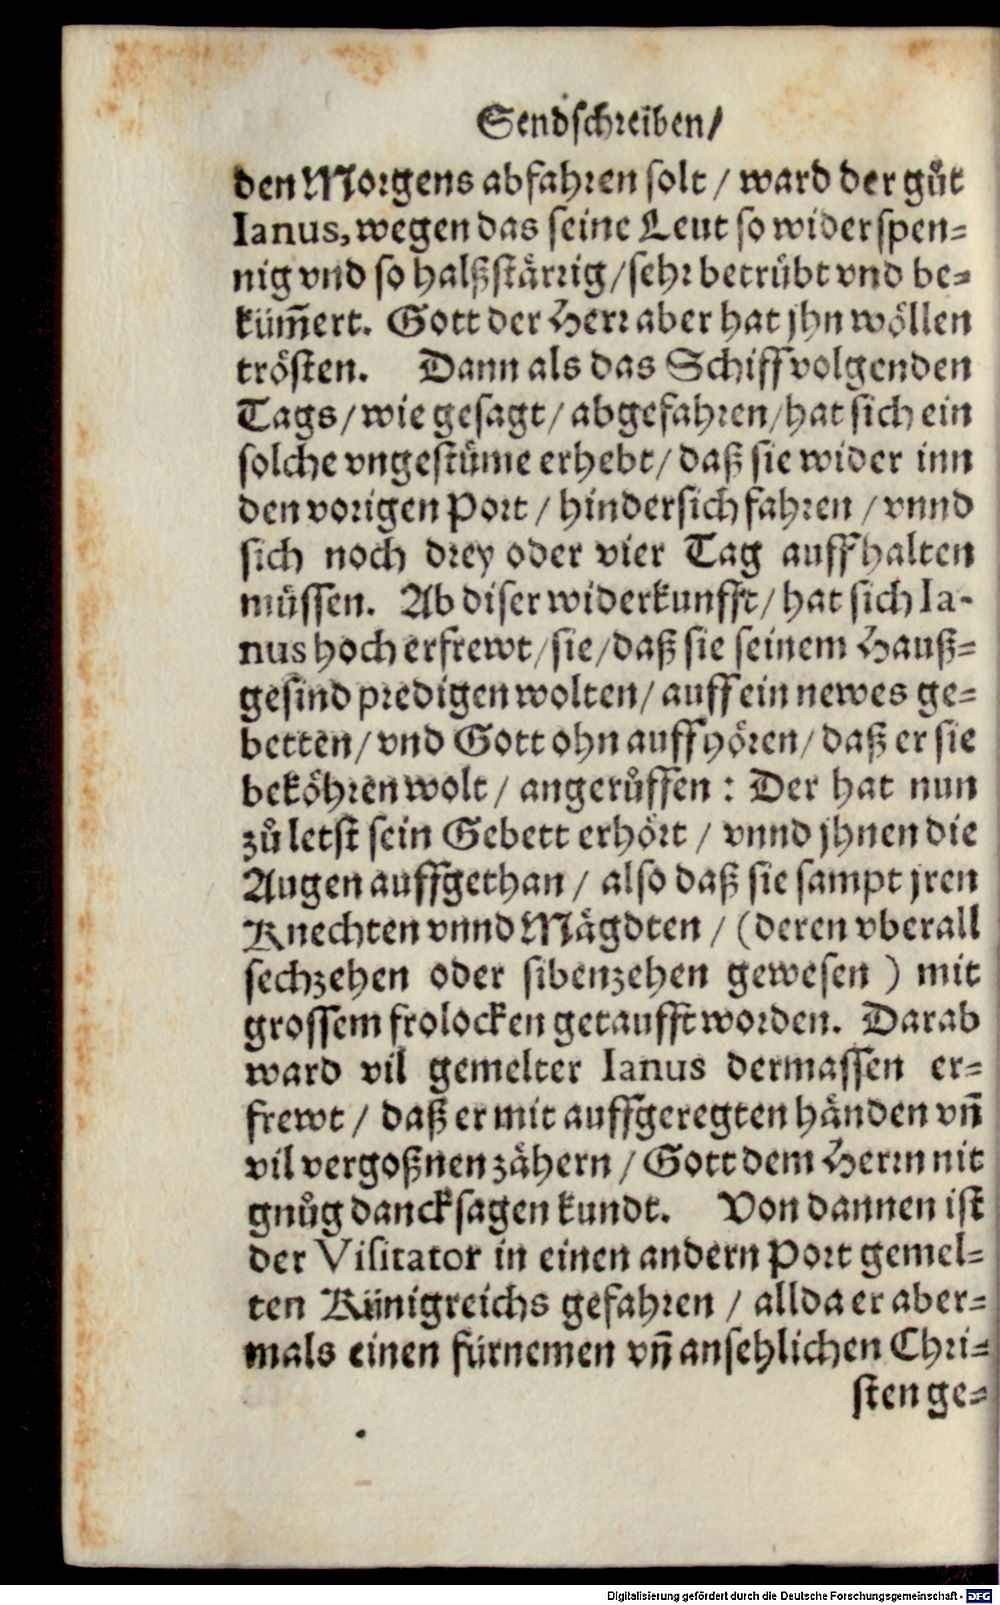 Sendschreiben/
den Morgens abfahren solt / ward der gůt
Ianus, wegen das seine Leut so widerspen=
nig vnd so halßstärrig / sehr betrübt vnd be=
küm̃ert. Gott der Herr aber hat jhn wöllen
trösten. Dann als das Schiff volgenden
Tags / wie gesagt / abgefahren / hat sich ein
solche vngestüme erhebt / daß sie wider inn
den vorigen Port / hindersich fahren / vnnd
sich noch drey oder vier Tag auffhalten
müssen. Ab diser widerkunfft / hat sich Ia-
nus hoch erfrewt / sie / daß sie seinem Hauß=
gesind predigen wolten / auff ein newes ge=
betten / vnd Gott ohn auffhören / daß er sie
beköhren wolt / angerůffen : Der hat nun
zů letst sein Gebett erhört / vnnd jhnen die
Augen auffgethan / also daß sie sampt jren
Knechten vnnd Mägdten / (deren vberall
sechzehen oder sibenzehen gewesen ) mit
grossem frolocken getaufft worden. Darab
ward vil gemelter Ianus dermassen er=
frewt / daß er mit auffgeregten händen vñ
vil vergoßnen zähern / Gott dem Herrn nit
gnůg dancksagen kundt. Von dannen ist
der Visitator in einen andern Port gemel=
ten Künigreichs gefahren / allda er aber=
mals einen fürnemen vñ ansehlichen Chri=
sten ge=
Digitalisierung gefördert durch die Deutsche Forschungsgemeinschaft - DFG